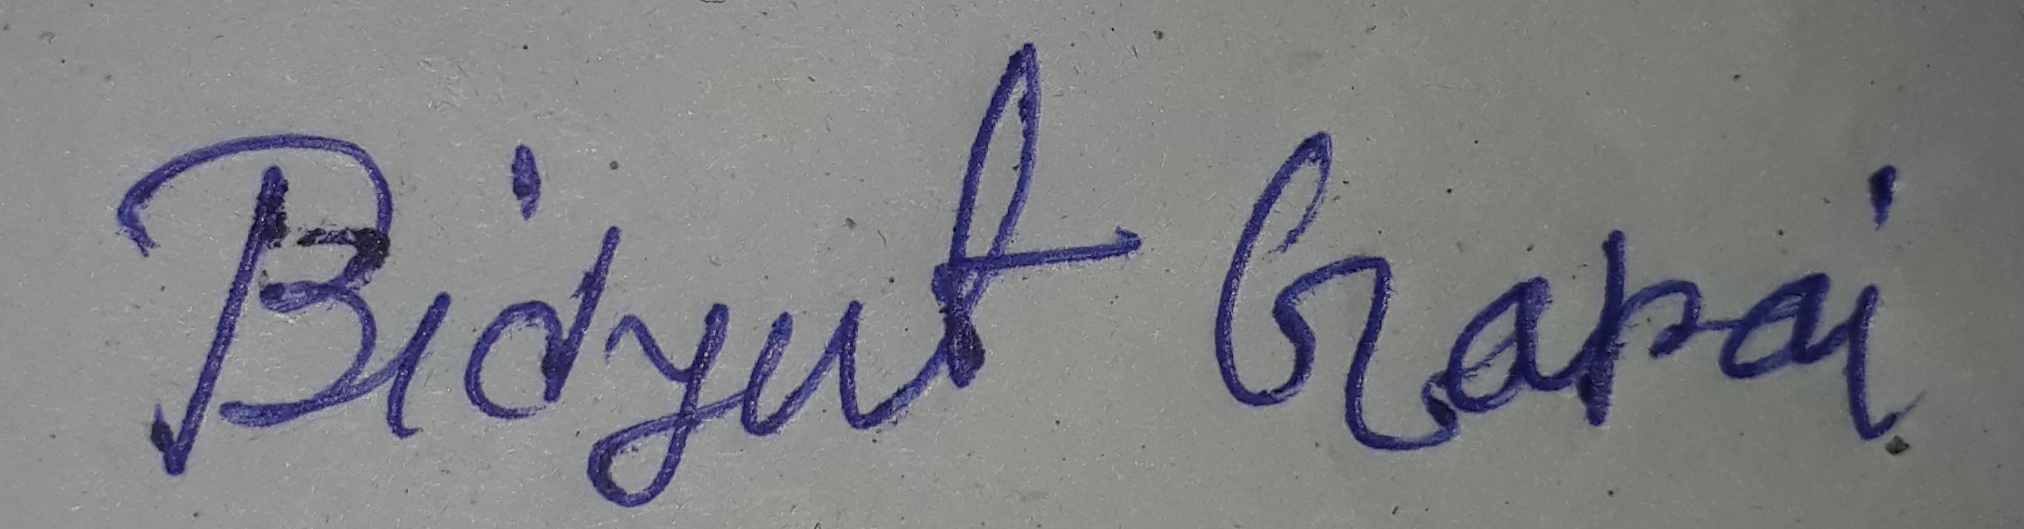 Bidyut Garai